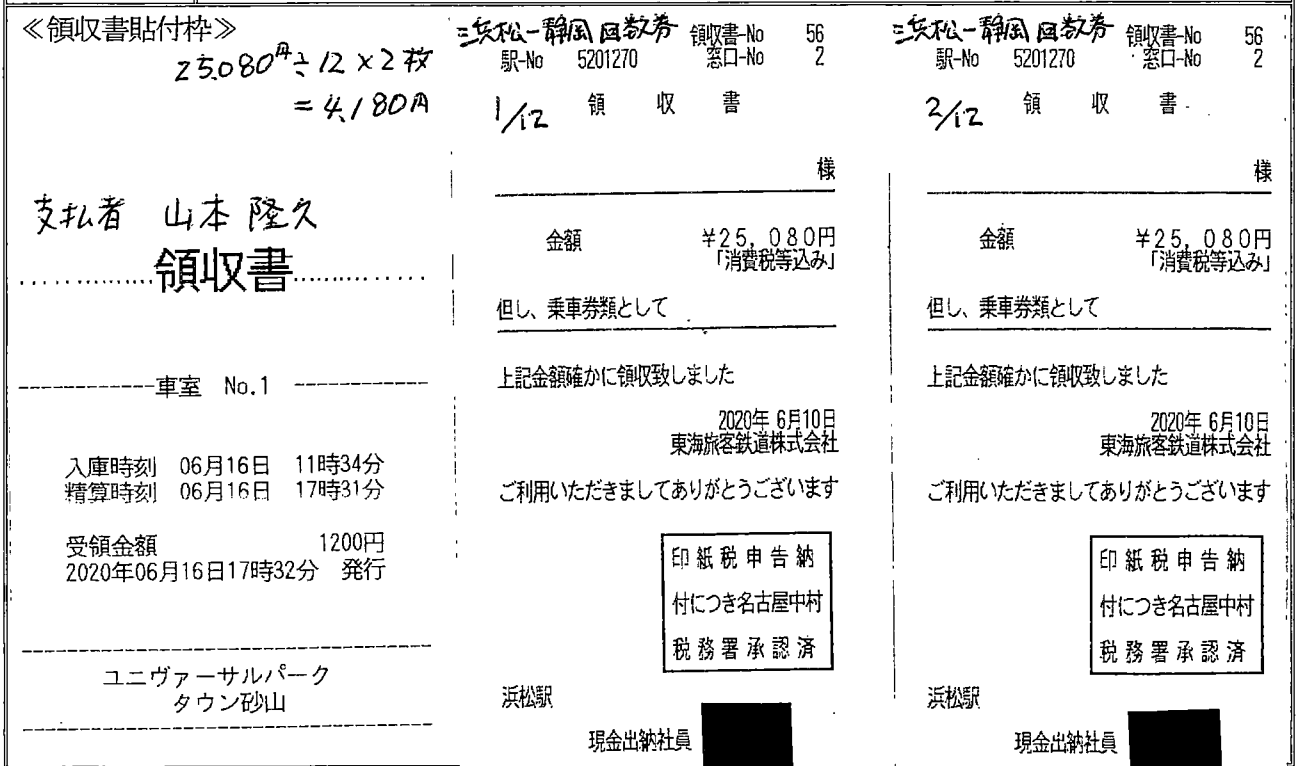 ≪領収書貼付枠≫
25,080円÷12×2枚
=4,180円
支払者 山本隆久
領収書
車室 No.1
入庫時刻 06月16日 11時34分
精算時刻 06月16日 17時31分
受領金額 1200円
2020年06月16日17時32分 発行
ユニヴァーサルパーク
タウン砂山
浜松-静岡 回数券
領収書-No 56
駅-No 5201270 窓口-No 2
1/12 領収書
様
金額 ¥25,080円
「消費税等込み」
但し、乗車券類として
上記金額確かに領収致しました
2020年 6月10日
東海旅客鉄道株式会社
ご利用いただきましてありがとうございます
印紙税申告納
付につき名古屋中村
税務署承認済
浜松駅
現金出納社員
浜松-静岡 回数券
領収書-No 56
駅-No 5201270 窓口-No 2
2/12 領収書
様
金額 ¥25,080円
「消費税等込み」
但し、乗車券類として
上記金額確かに領収致しました
2020年 6月10日
東海旅客鉄道株式会社
ご利用いただきましてありがとうございます
印紙税申告納
付につき名古屋中村
税務署承認済
浜松駅
現金出納社員